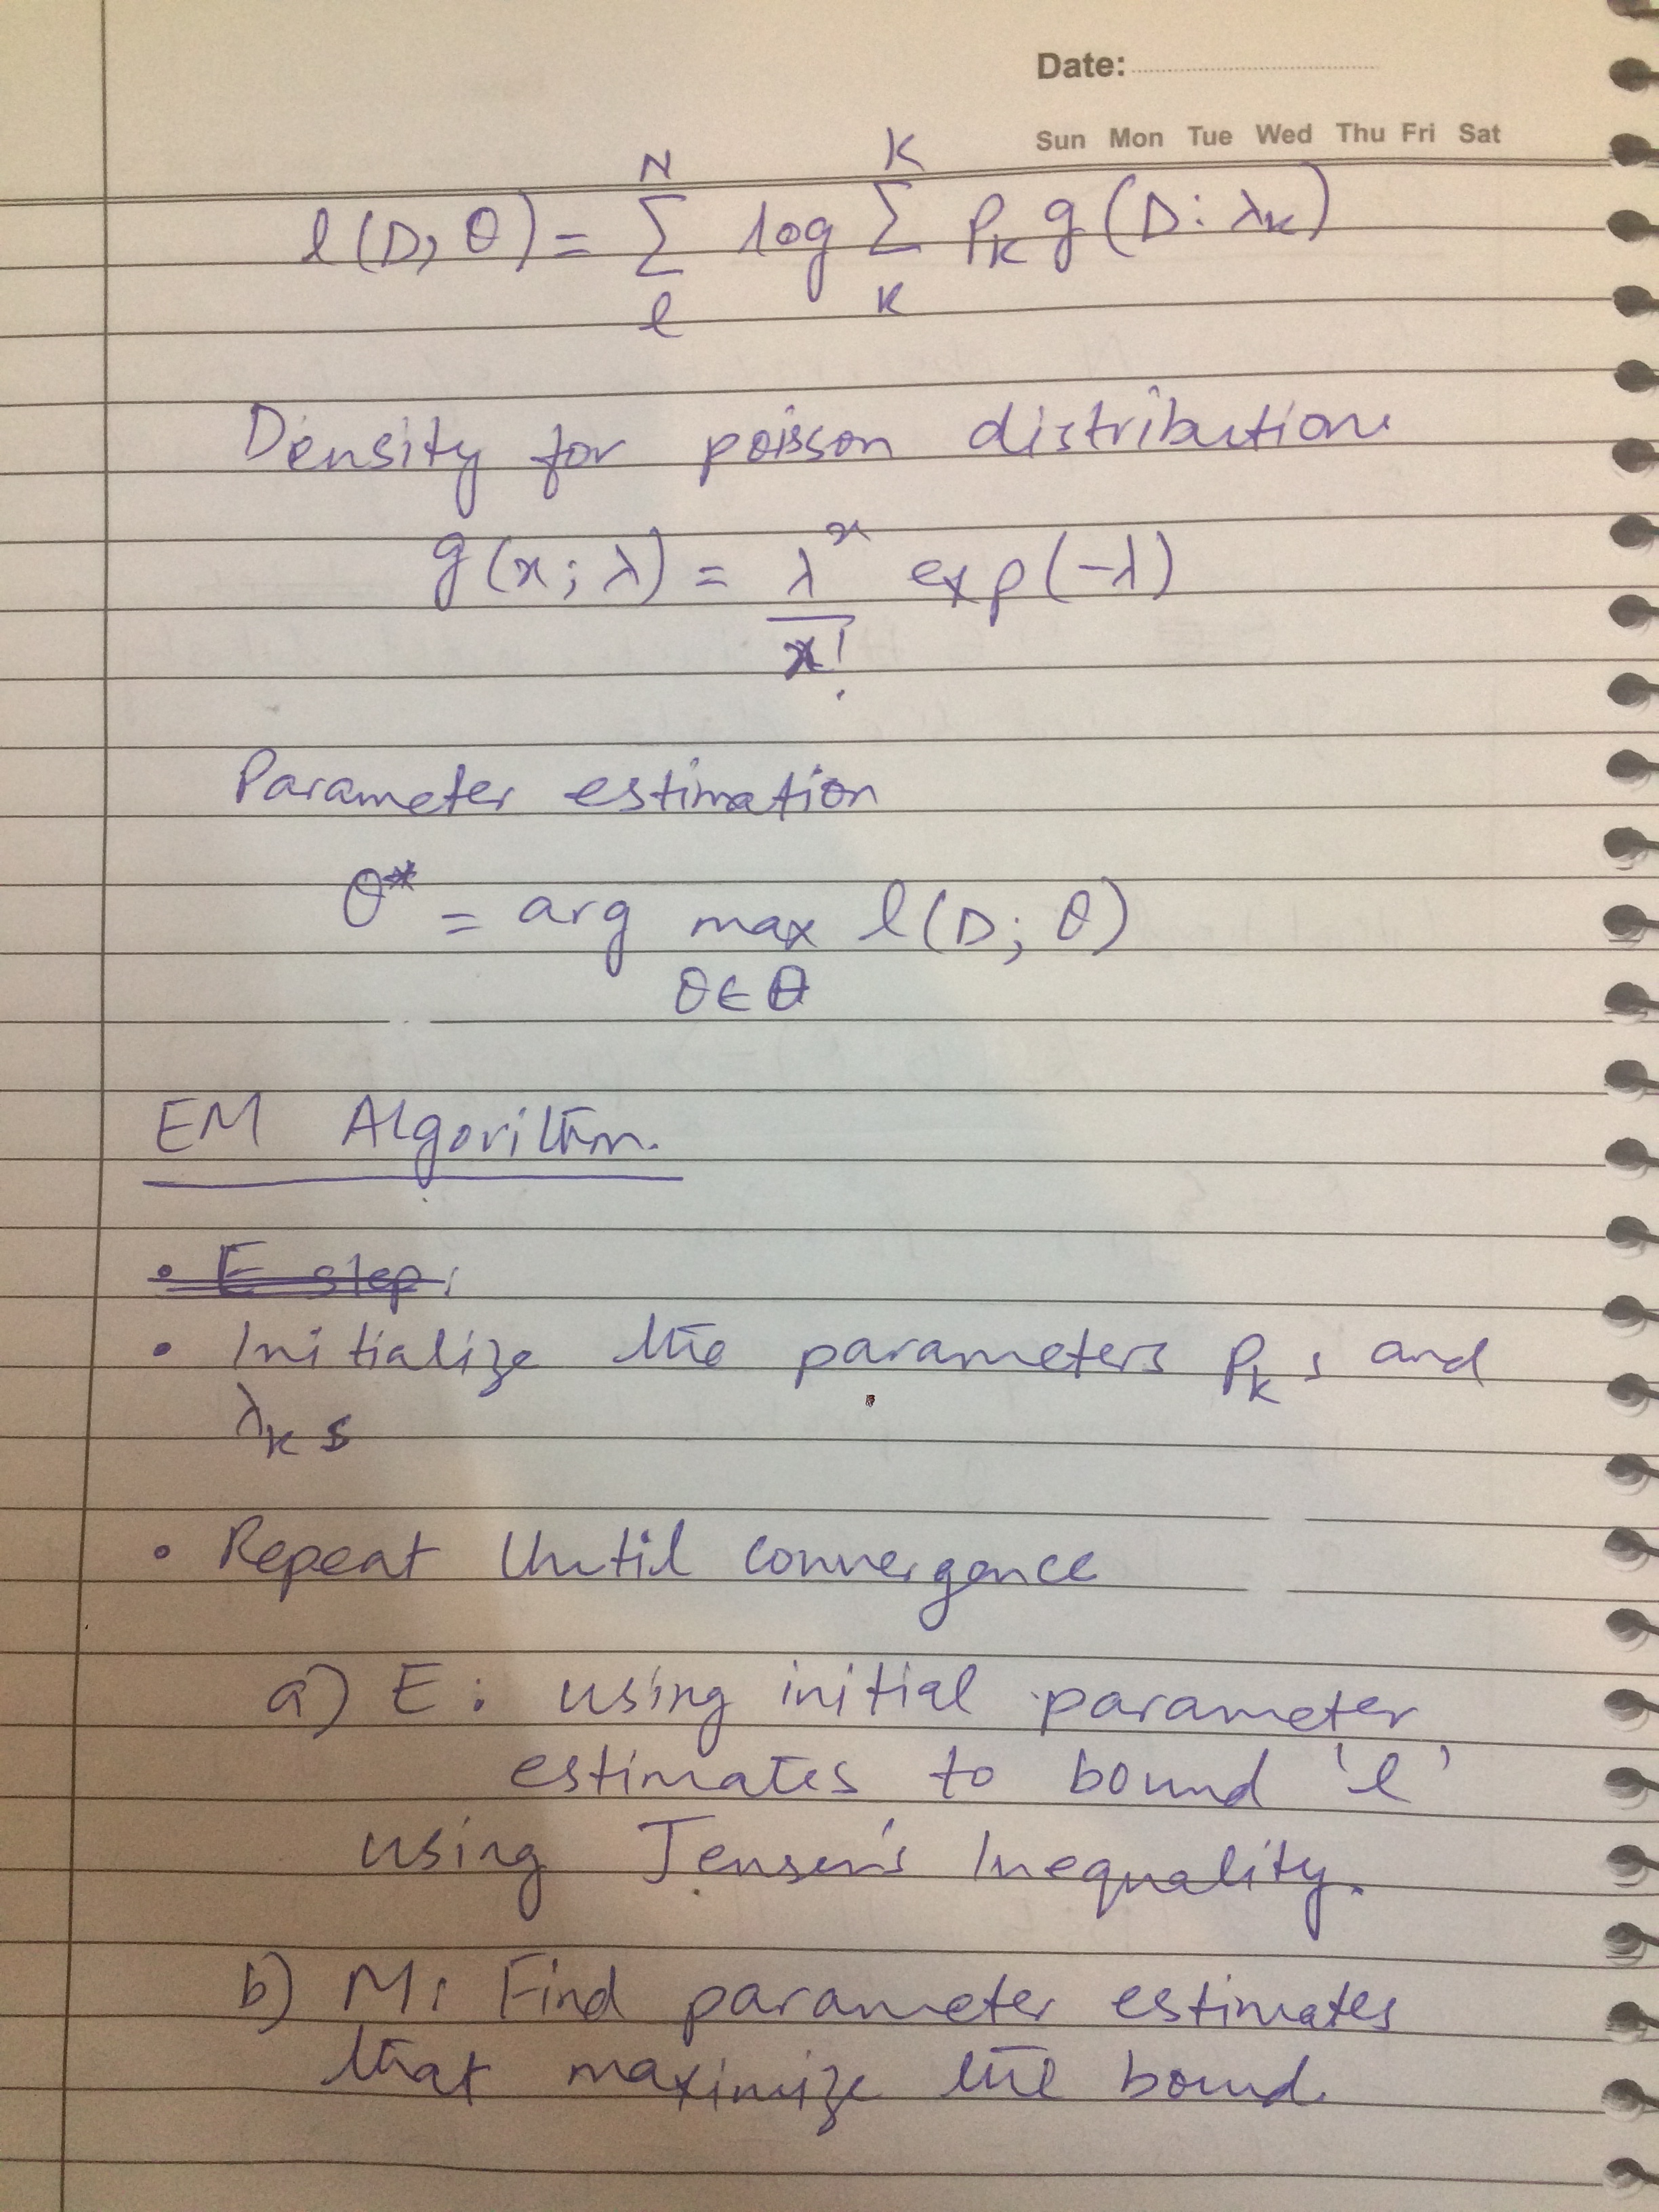 Date:
Sun Mon Tue Wed Thu Fri Sat
l(D, θ) = Σ_l^N log Σ_K^K P_K g(D: λ_K)
Density for poisson distribution.
g(x; λ) = λ^x / x! exp(-λ)
Parameter estimation
θ* = arg max l(D; θ)
θ ∈ Θ
EM Algorithm.
• E step:
• Initialize the parameters P_K s and
λ_K s
• Repeat Until convergence
a) E: using initial parameter
estimates to bound 'l'
using Jensen's Inequality.
b) M: Find parameter estimates
that maximize the bound.